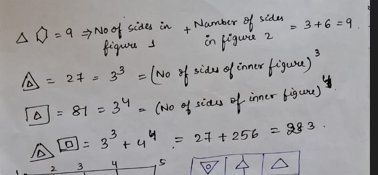 △ ⬡ = 9 ⇒ No of sides in figure 1 + Number of sides in figure 2 = 3 + 6 = 9
△ = 27 = 3³ = (No of sides of inner figure)³
△ = 81 = 3⁴ = (No of sides of inner figure)⁴
△ □ = 3³ + 4⁴ = 27 + 256 = 283.
2 3 4 5